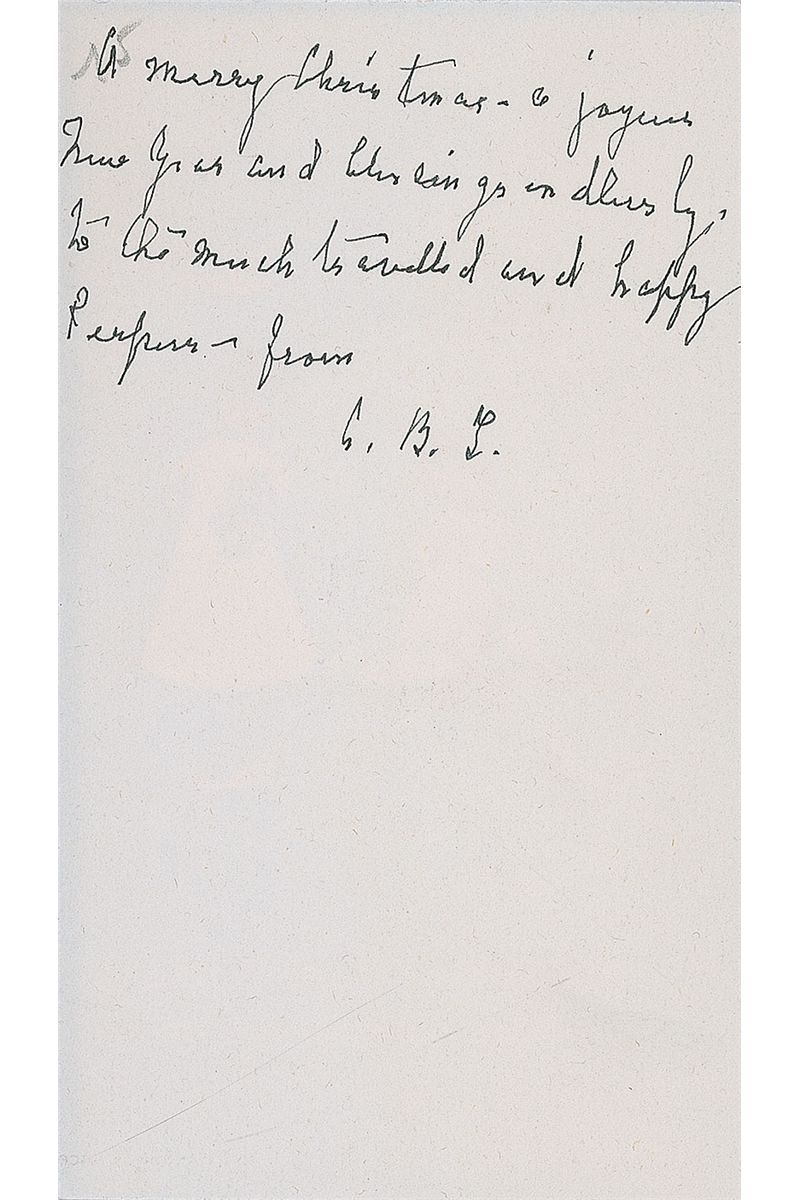 A merry Christmas - a joyous
New Year and blessings endlessly,
to the much travelled and happy
from
C. B. L.